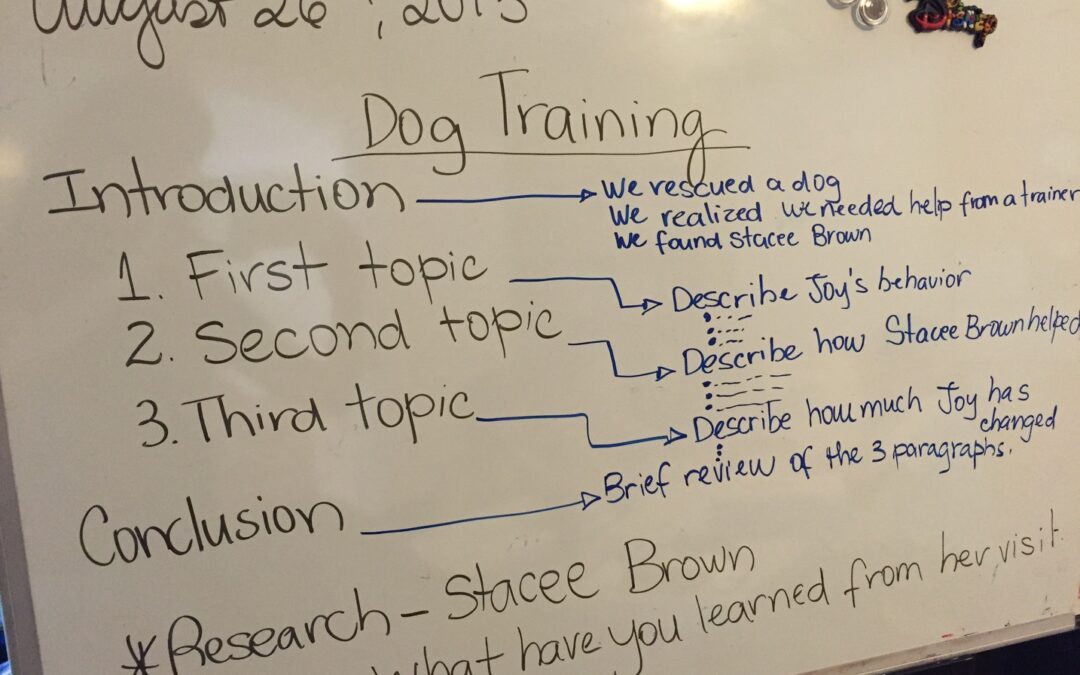 August 26, 2015
Dog Training
Introduction → We rescued a dog
We realized we needed help from a trainer
We found Stacee Brown
1. First topic → Describe Joy's behavior
2. Second topic → Describe how Stacee Brown helped
3. Third topic → Describe how much Joy has
changed
Conclusion → Brief review of the 3 paragraphs.
*Research - Stacee Brown
What have you learned from her visit